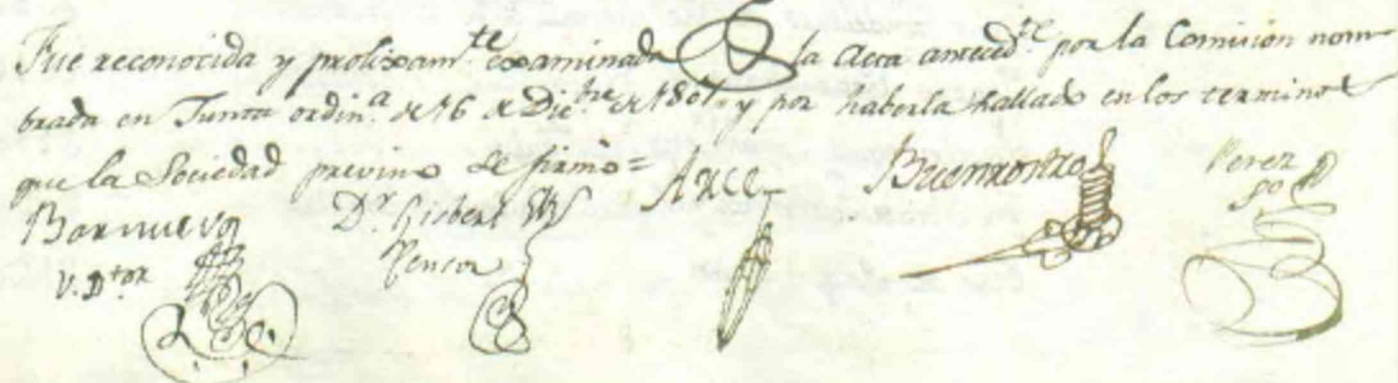 Fue reconocida y prolixam.te examinada la Acta anteced.te por la Comision nom
brada en Junta ordin.a de 16 de Dic.bre de 1801. y por haberla hallado en los terminos
que la Sociedad previno se firmó =
Arce
Buenrostro
Perez
Sº
Barnuevo
V. D.tor
D.r Gisbert
Censor